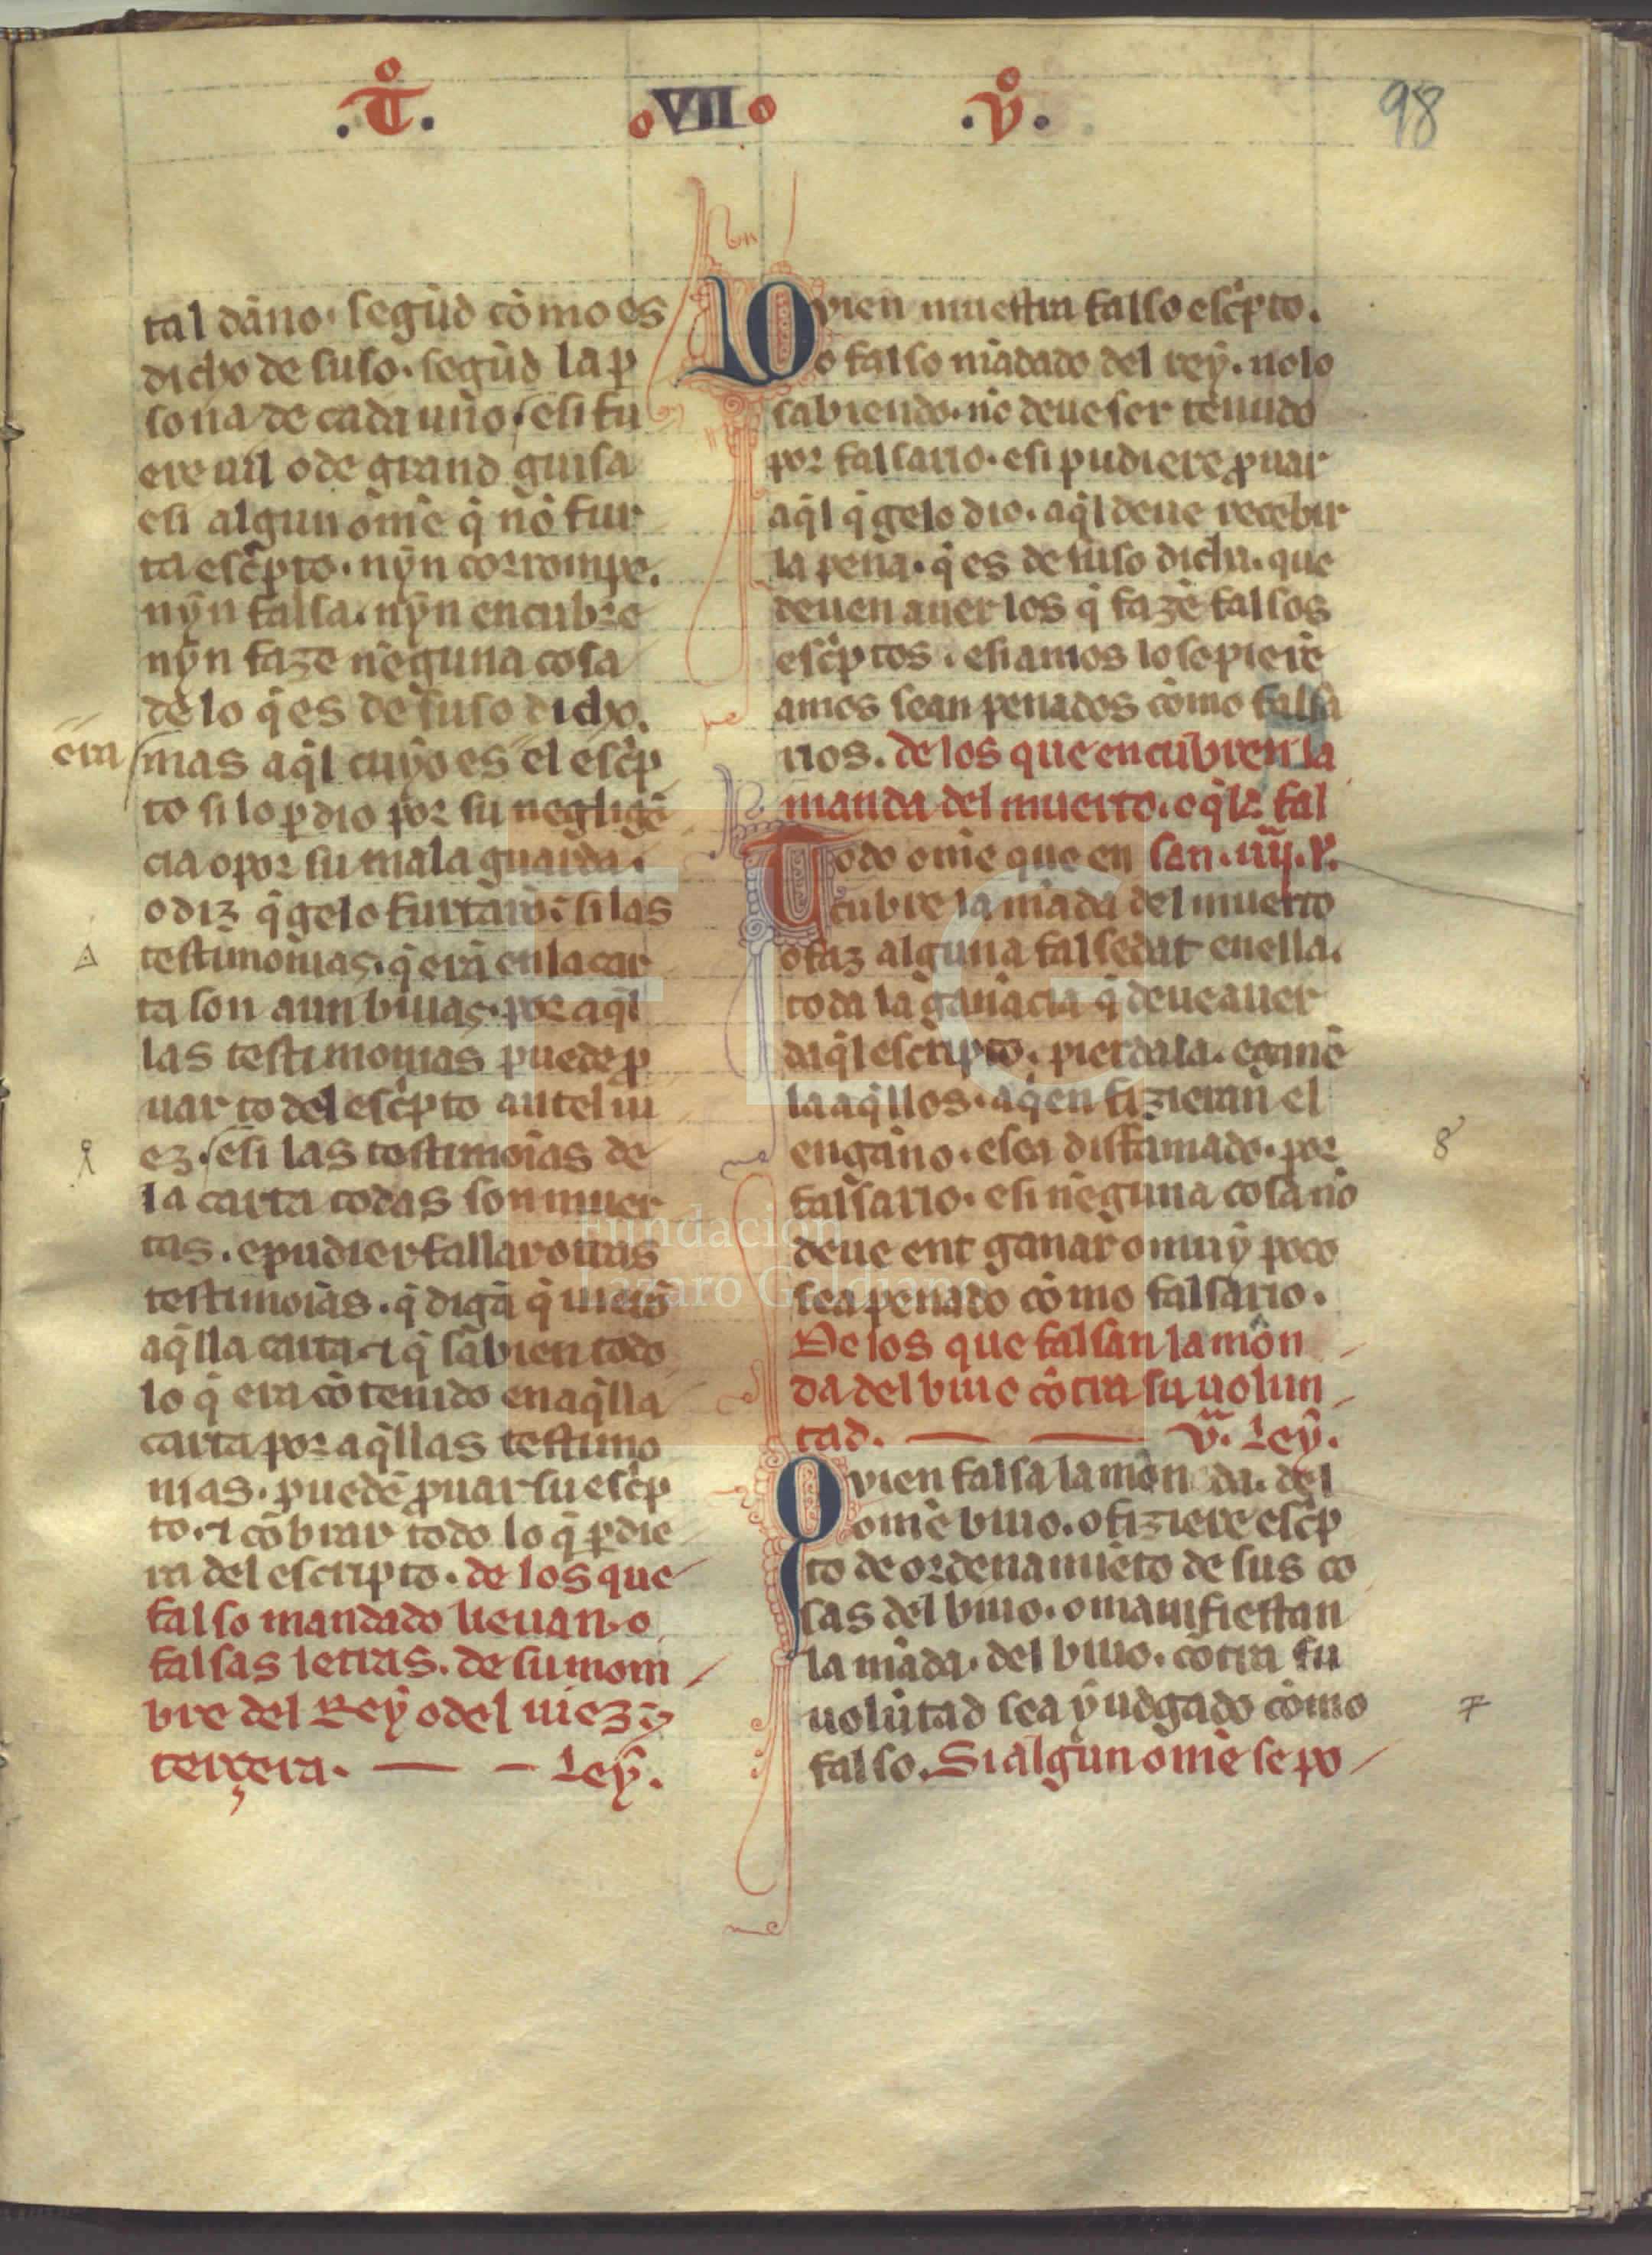 .T. VII .v.
98
tal dãno. segũd cõmo es
dicho de suso. segũd la p
sona de cada uno. esi fu
ere uil o de grand guisa
esi algun omẽ q̃ nõ fur
ta escp̃to. nyn corrompe.
nyn falsa. nyn encubre
nyn faze nẽguna cosa
de lo q̃ es de suso dicho.
era
mas aq̃l cuyo es el escp̃
to si lo pdio por su negligẽ
cia o por su mala guarda.
o diz q̃ gelo furtarõ. si las
testimonias. q̃ erã en la car
ta son aun biuas. por aq̃l
las testimonias puede p
uar to del escp̃to antel iu
ez. esi las testimoias de
la carta todas son muer
tas. e pudier fallar otras
testimoias. q̃ digã q̃
aq̃lla carta. ⁊ q̃ sabien todo
lo q̃ era cõtenido en aq̃lla
carta por aq̃llas testimo
nias. puede puar su escp̃
to. ⁊ cõbrar todo lo q̃ pdie
ra del escripto. de los que
falso mandado lieuan. o
falsas letras. de su nom
bre del Rey o del iuez
terçera. Ley.
Quien muestra falso escp̃to.
o falso mãdado del rey. no lo
sabiendo. nõ deue ser tenudo
por falsario. esi pudiere puar
aq̃l q̃ gelo dio. aq̃l deue recebir
la pena. q̃ es de suso dicha. que
deuen auer los q̃ fazẽ falsos
escp̃tos. esi amos lo sopierẽ
amos sean penados como falsa
rios. de los que encubren la
manda del muerto. o q̃ la fal
Todo omẽ que en san. iiij. l.
cubre la mãda del muerto
o faz alguna falsedat en ella.
toda la ganãcia q̃ deue auer
daq̃l escripto. pierdala. e ganẽ
la aq̃llos. a q̃en fizieran el
engano. e sea disfamado. por
8
falsario. esi nẽguna cosa nõ
deue ent ganar o muy poco
sea penado cõmo falsario.
De los que falsan la mãn
da del biuo cõtra su uolun
tad. v. Ley.
Quien falsa la man da. del
omẽ biuo. o fiziere escp̃
to de ordenamiẽto de sus co
sas del biuo. o manifiestan
la mãda. del biuo. cõtra su
uolũtad sea yudgado cõmo
7
falso. Si algun omẽ se po
Fundación
Lázaro Galdiano
FLG